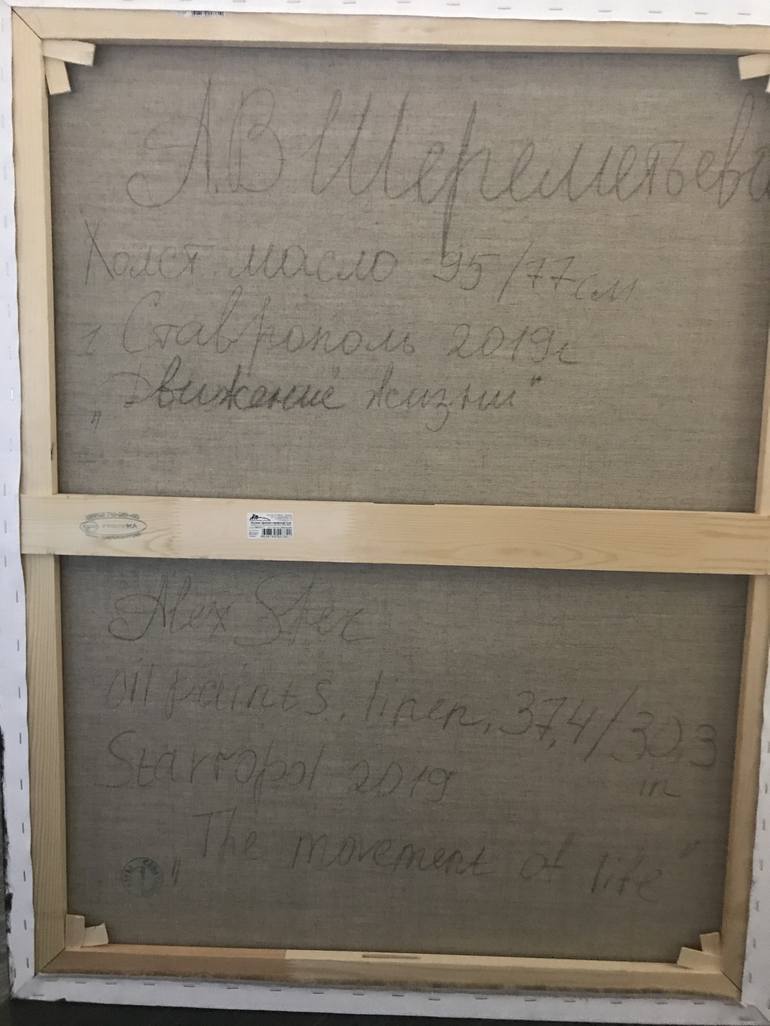 А.В Шереметьева
Холст. масло 95/77 см
г Ставрополь 2019г
„Движение жизни“
Alex Sher
oil paints, linen, 37,4/30,3
in
Stavropol 2019
„The movement of life“